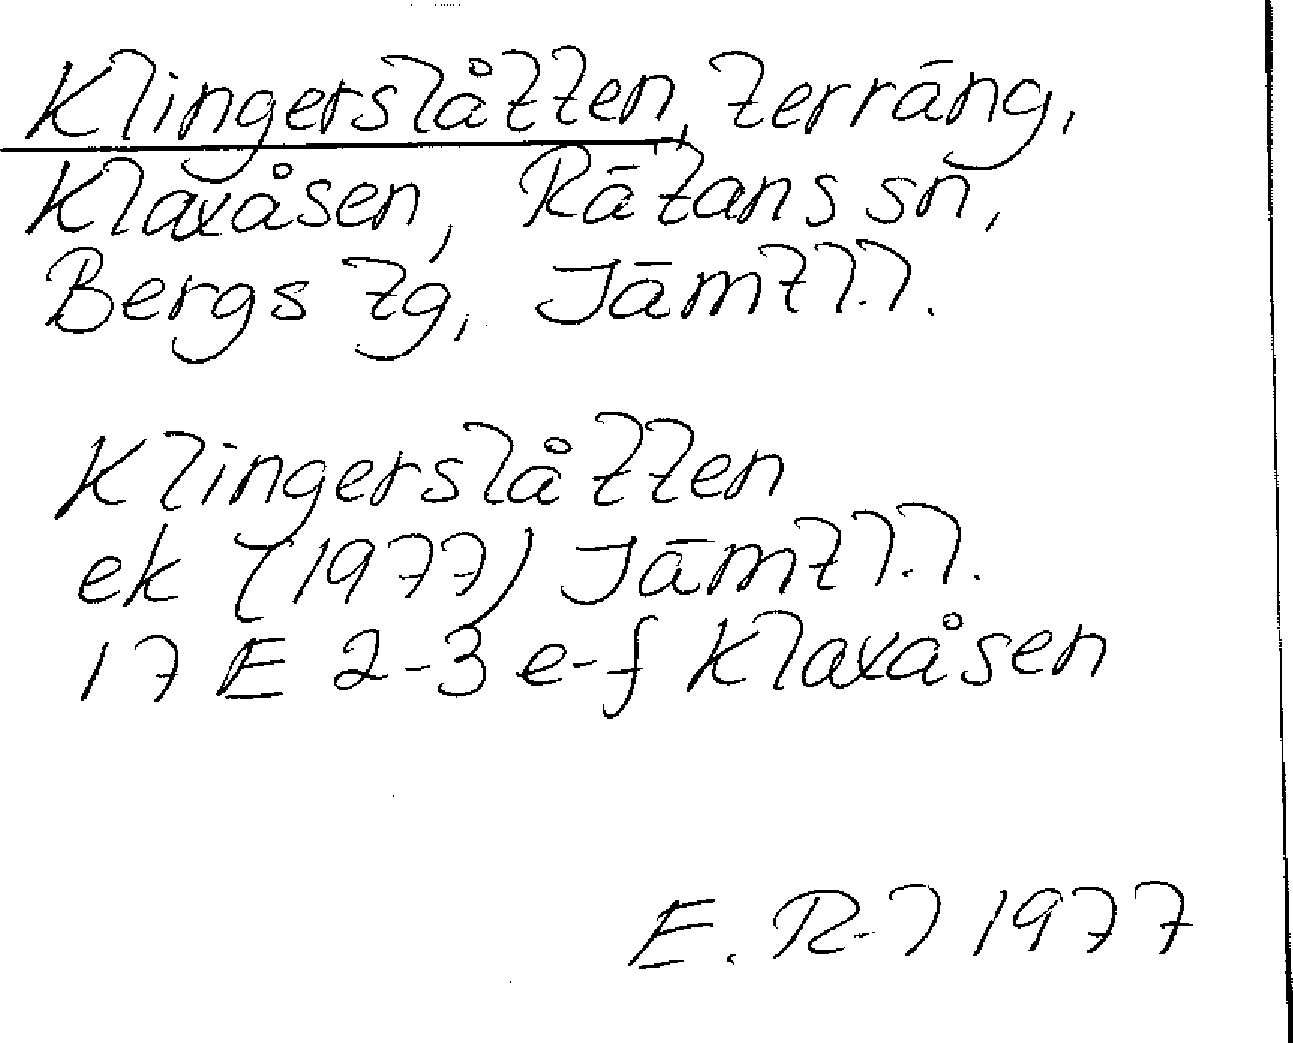 Klingerslåtten, terräng,
Klaxåsen, Rätans sn,
Bergs tg, Jämtl.l.
Klingerslåtten
ek (1977) Jämtl.l.
17 E 2-3 e-f Klaxåsen
E. R-l 1977